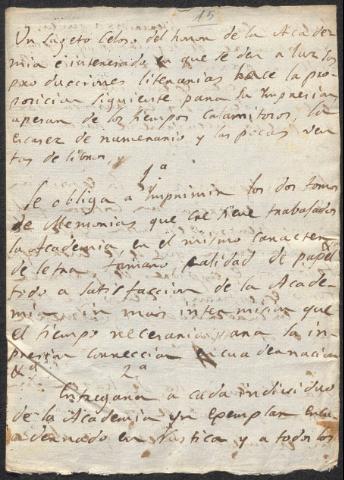 15
Un Sugeto Celoso del honor de la Acade
mia e interesado en que se den a luz los
producciones literarias hace la pro
posicion siguiente para su Impresion
apesar de los tiempos calamitosos, la
Escasez de numerario y las pocas ven
tas de libros
1.a
Se obliga a Imprimir los dos tomos
de Memorias que tiene trabajados
la Academia en el mismo caracter
de letra, tamaño calidad de papel
todo a satisfaccion de la Acade
mia sin mas intermision que
el tiempo necesario para la im
presion correccion encuadernacion
&a
2.a
Entregara a cada individuo
de la Academia un exemplar encu
adernado en rustica y a todos los